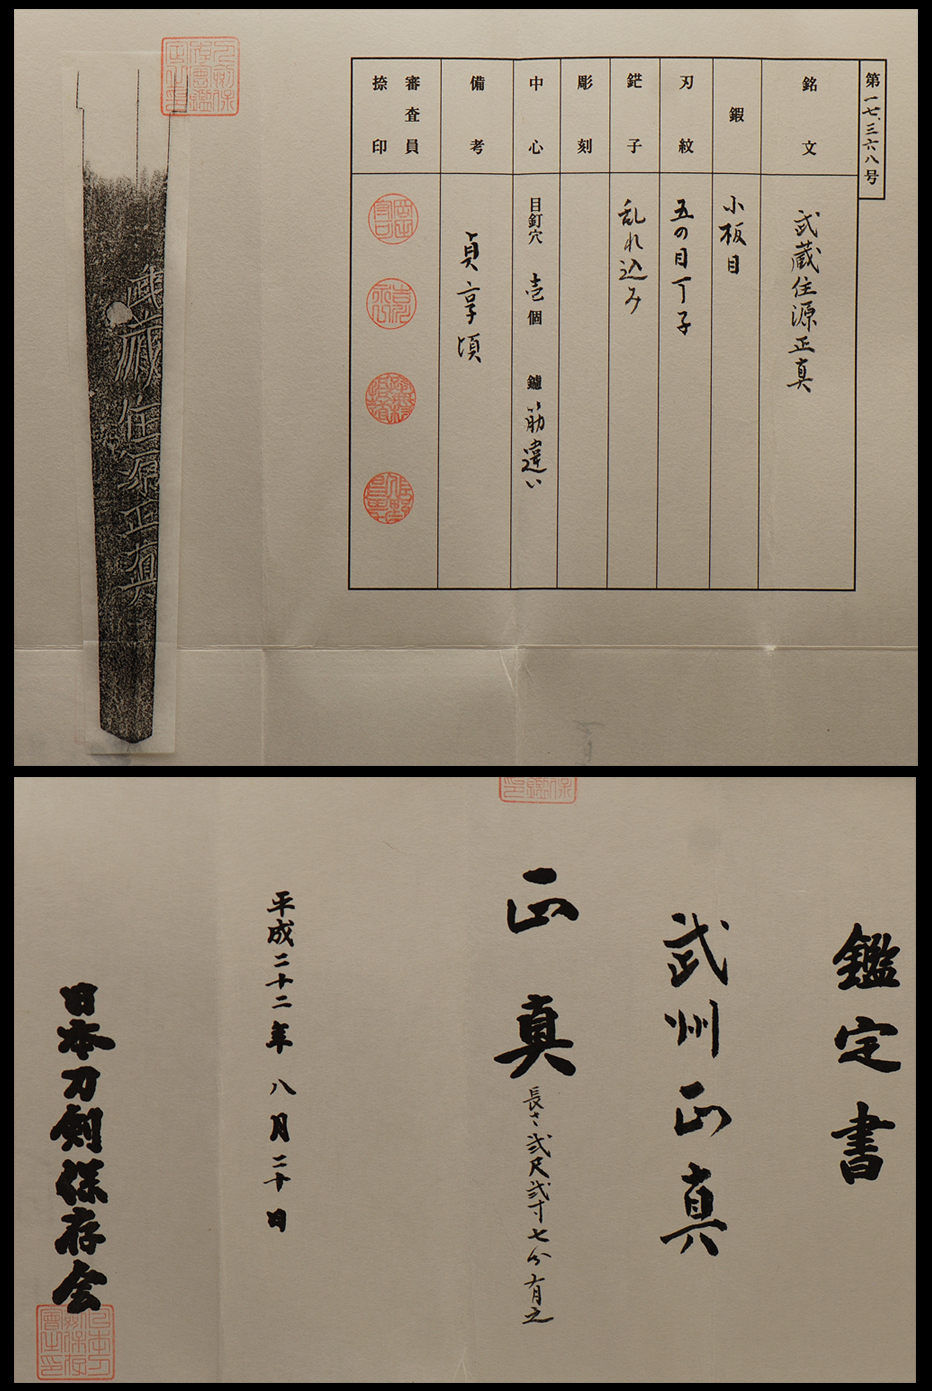 第一七、三六八号
銘文
武蔵住源正真
鍜
小板目
刃紋
五の目丁子
鋩子
乱れ込み
彫刻
中心
目釘穴 壱個 鑢 筋違い
備考
貞享頃
審査員
捺印
武蔵住源正真
鑑定書
武州正真
正真
長さ弐尺弐寸七分有之
平成二十二年八月二十日
日本刀剣保存会